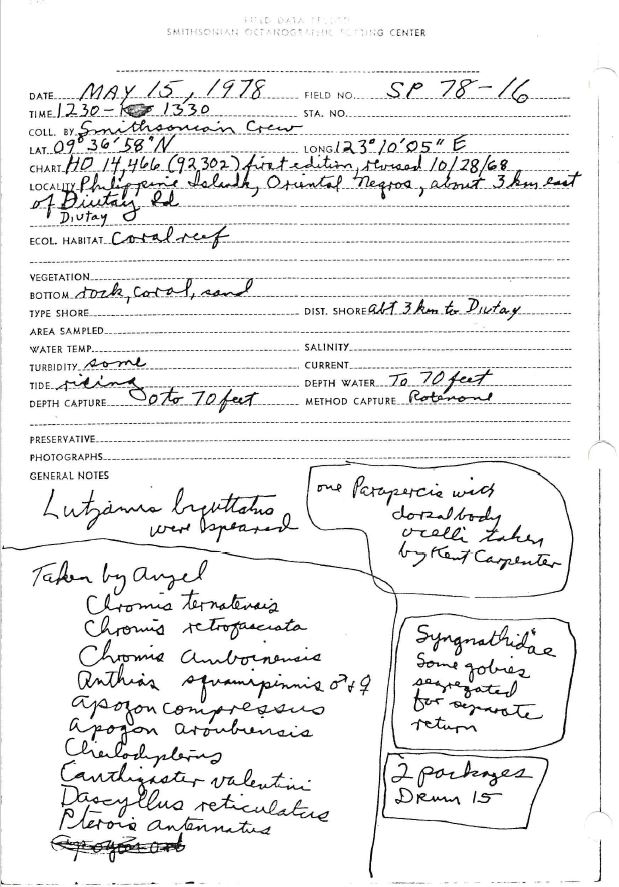 FIELD DATA RECORD
SMITHSONIAN OCEANOGRAPHIC SORTING CENTER
DATE MAY 15, 1978 FIELD NO. SP 78-16
TIME 1230- 1330 STA. NO.
COLL. BY Smithsonian Crew
LAT. 09° 36' 58" N LONG. 123° 10' 05" E
CHART HO 14,466 (92302) first edition, revised 10/28/68
LOCALITY Philippine Islands, Oriental Negros, about 3 km east
of Diutay Id
Diutay
ECOL. HABITAT Coral reef
VEGETATION
BOTTOM rock, coral, sand
TYPE SHORE DIST. SHORE abt 3 km to Diutay
AREA SAMPLED
WATER TEMP. SALINITY
TURBIDITY some CURRENT
TIDE rising DEPTH WATER To 70 feet
DEPTH CAPTURE 0 to 70 feet METHOD CAPTURE Rotenone
PRESERVATIVE
PHOTOGRAPHS
GENERAL NOTES
Lutjanus biguttatus
were speared
one Parapercis with
dorsal body
ocelli taken
by Kent Carpenter
Taken by Angel
Chromis ternatensis
Chromis retrofasciata
Chromis amboinensis
Anthias squamipinnis ♂ + ♀
Apogon compressus
Apogon aroubiensis
Cheilodipterus
Canthigaster valentini
Dascyllus reticulatus
Pterois antennatus
Syngnathidae
Some gobies
segregated
for separate
return
2 packages
Drum 15